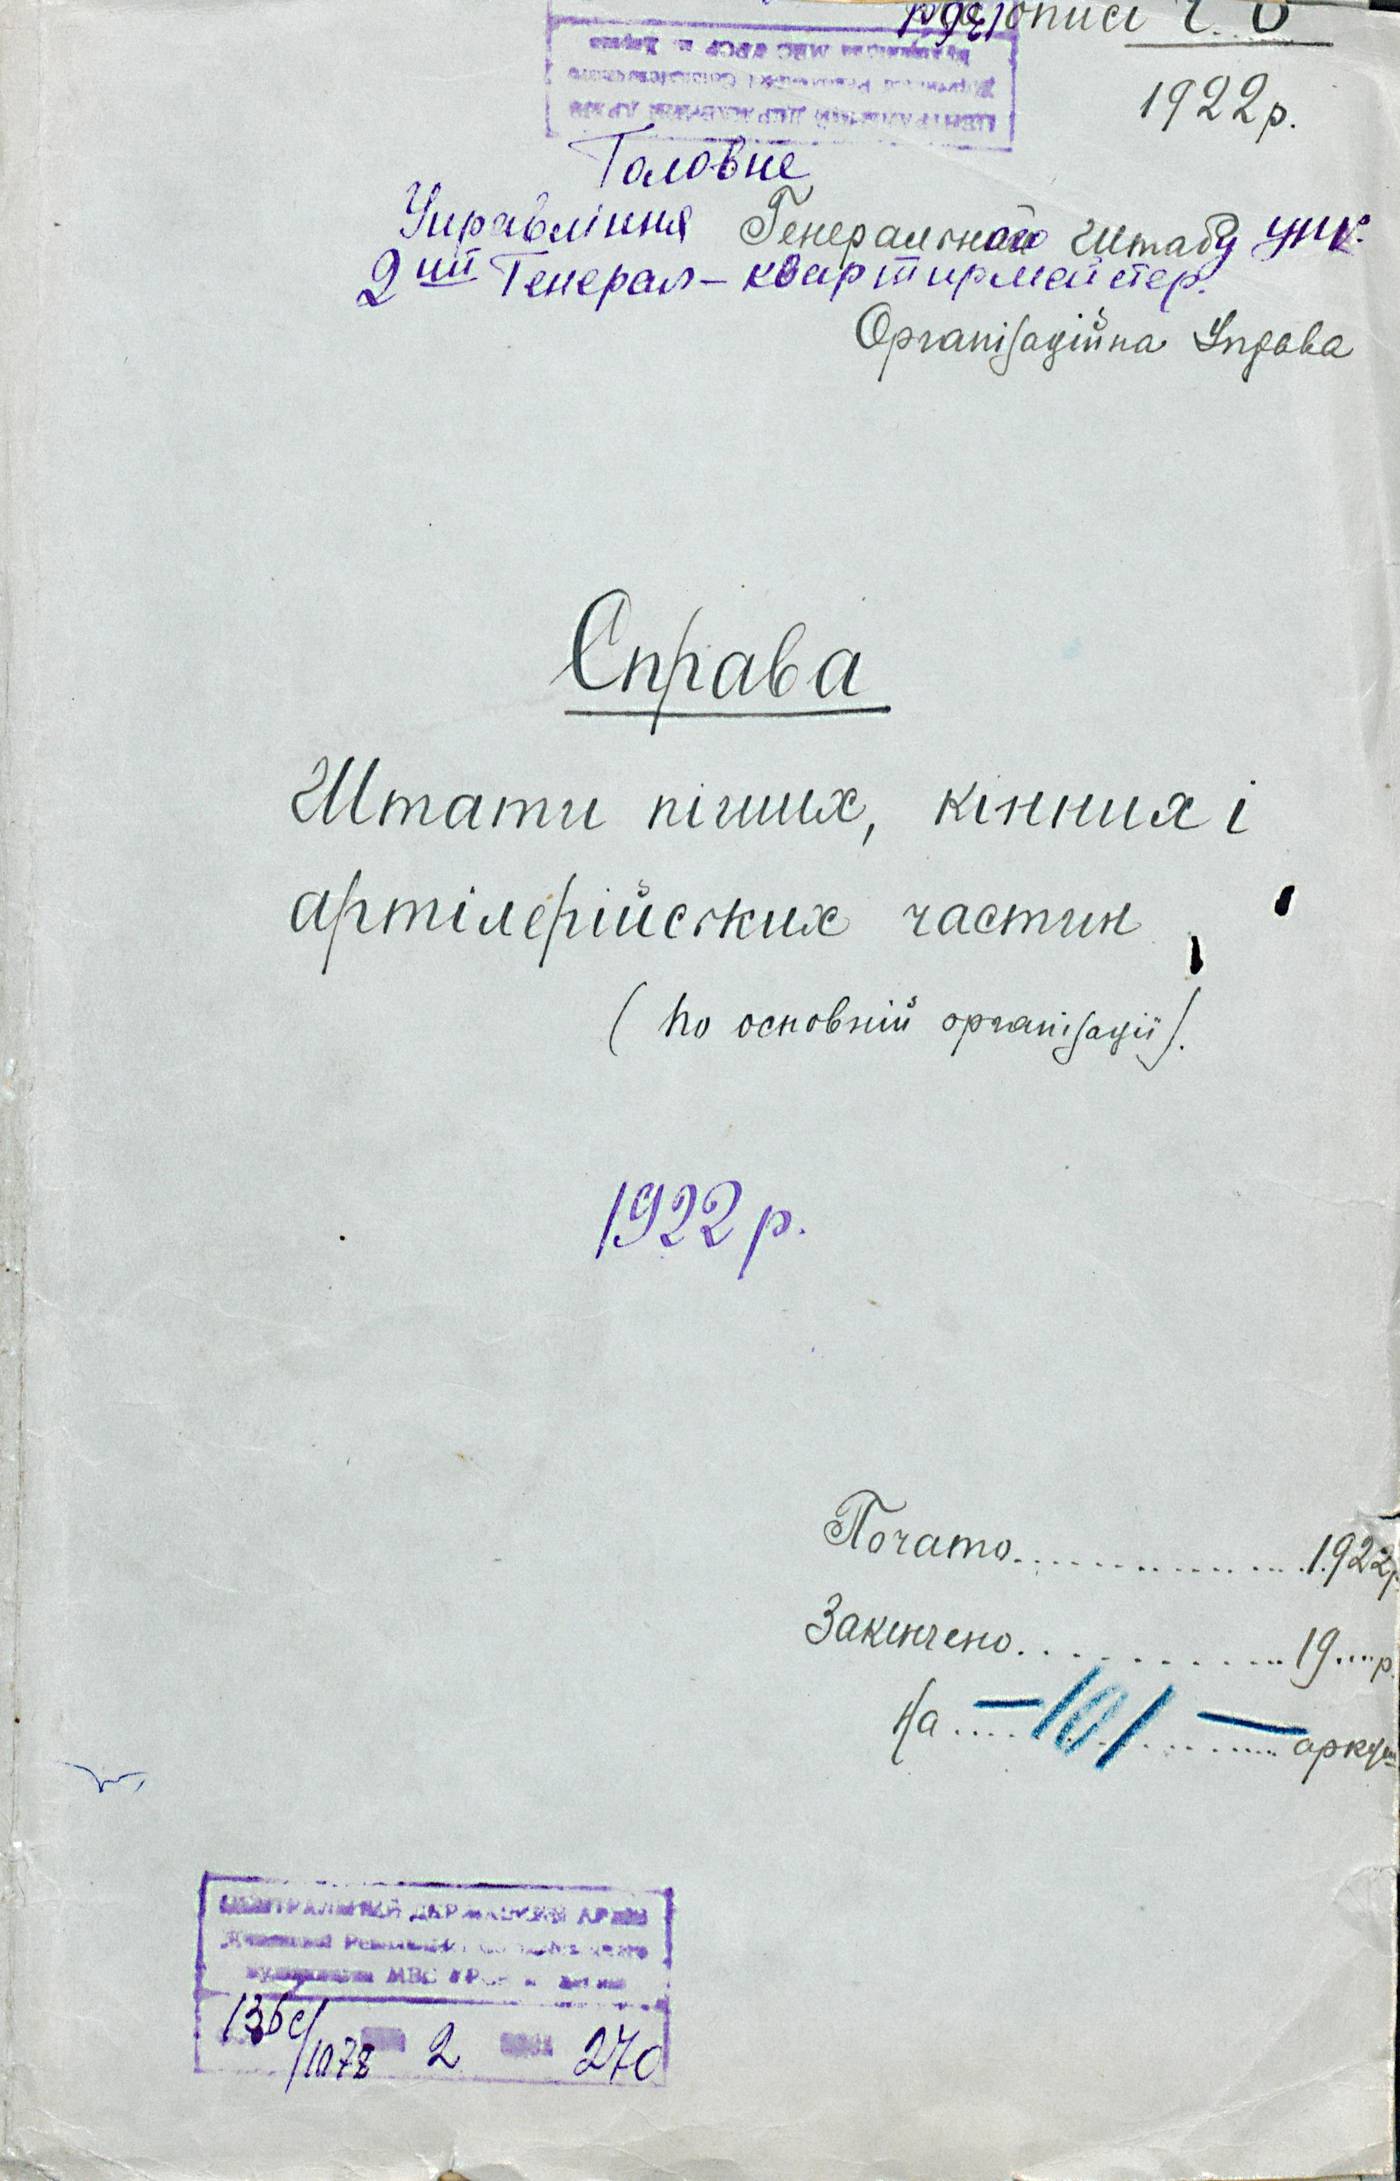 описі ч. 8
1922 р.
ЦЕНТРАЛЬНИЙ ДЕРЖАВНИЙ АРХІВ
Головне
Управління Генерального Штабу УНР.
2ий Генерал-квартирмейстер.
Організаційна Управа
Справа
Штати піших, кінних і
артілерійських частин
(по основній організації).
1922 р.
Почато.................1922р.
Закінчено.............19....р.
На ....-101-........аркуш
ЦЕНТРАЛЬНИЙ ДЕРЖАВНИЙ АРХІВ
МВС УРСР
1078 2 270